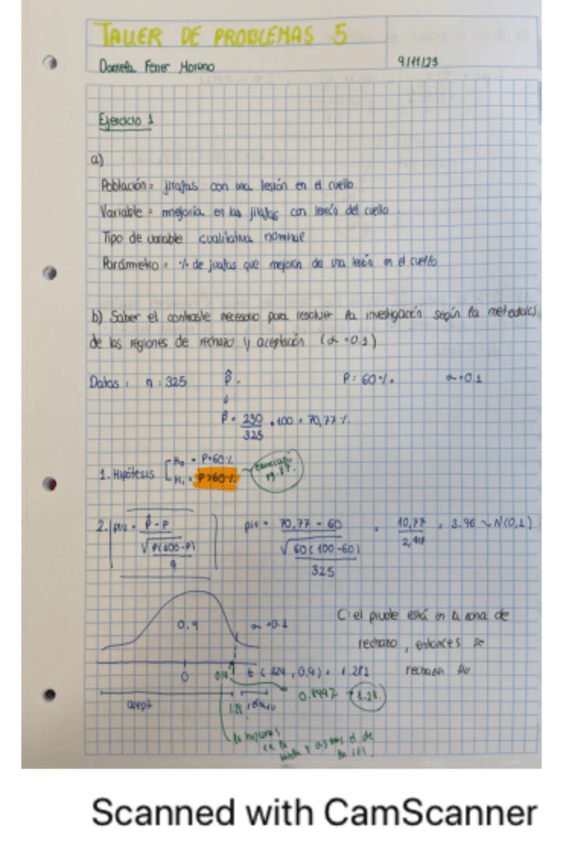 TALLER DE PROBLEMAS 5
Daniela Ferrer Moreno 9/11/23
Ejercicio 1
a)
Población = jirafas con una lesión en el cuello
Variable = mejoría en las jirafas con lesión del cuello
Tipo de variable cualitativa nominal
Parámetro = % de jirafas que mejoran de una lesión en el cuello
b) Saber el contraste necesario para resolver la investigación según la metodología
de las regiones de rechazo y aceptación (α = 0.1)
Datos: n = 325 p̂. P = 60%. α = 0.1
p̂ = 230/325 · 100 = 70,77 %.
1. Hipótesis H₀ = P=60%
H₁ = P>60%
2. p̂ - P / √(P(100-P)/n) = 70,77 - 60 / √(60(100-60)/325) = 10,77 = 3.96 ~ N(0,1)
0.9 α = 0.1
C: el está en la zona de
rechazo, entonces se
rechaza H₀
0 t (324, 0.9) = 1.282
acept 1.28 0.8997 → 1.28